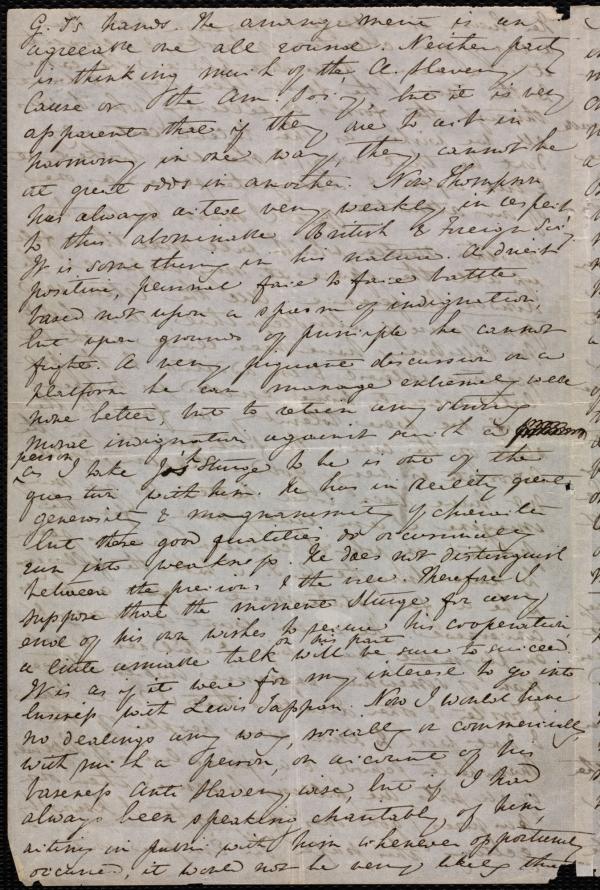 G. T's hands. The arrangement is an
agreeable one all round. Neither party
is thinking much of the A. Slavery
Cause or the Am. Soc'y, but it is very
apparent that if they are to act in
harmony in one way, they cannot be
at great odds in another. Now Thompson
has always acted very weakly in respect
to this abominable British & Foreign Soc'y
It is something in his nature. A direct
positive, personal face to face battle
based not upon a spasm of indignation,
but upon grounds of principle he cannot
fight. A very piquant discussion on a
platform he can manage extremely well
none better, but to retain any strong
moral indignation against such a
person
as I take Jos. Sturge to be is out of the
question with him. He has in reality great
generosity & magnanimity of character
but these good qualities do occasionally
run into weakness. He does not distinguish
between the precious & the vile. Therefore I
suppose that the moment Sturge for any
end of his own wishes to secure his cooperation,
a little amiable talk on his part will be sure to succeed.
It is as if it were for my interest to go into
business with Lewis Tappan. Now I would have
no dealings any way, socially or commercially
with such a person, on account of his
baseness Anti Slavery wise, but if I had
always been speaking charitably of him,
acting in public with him whenever opportunity
occurred, it would not be very likely that